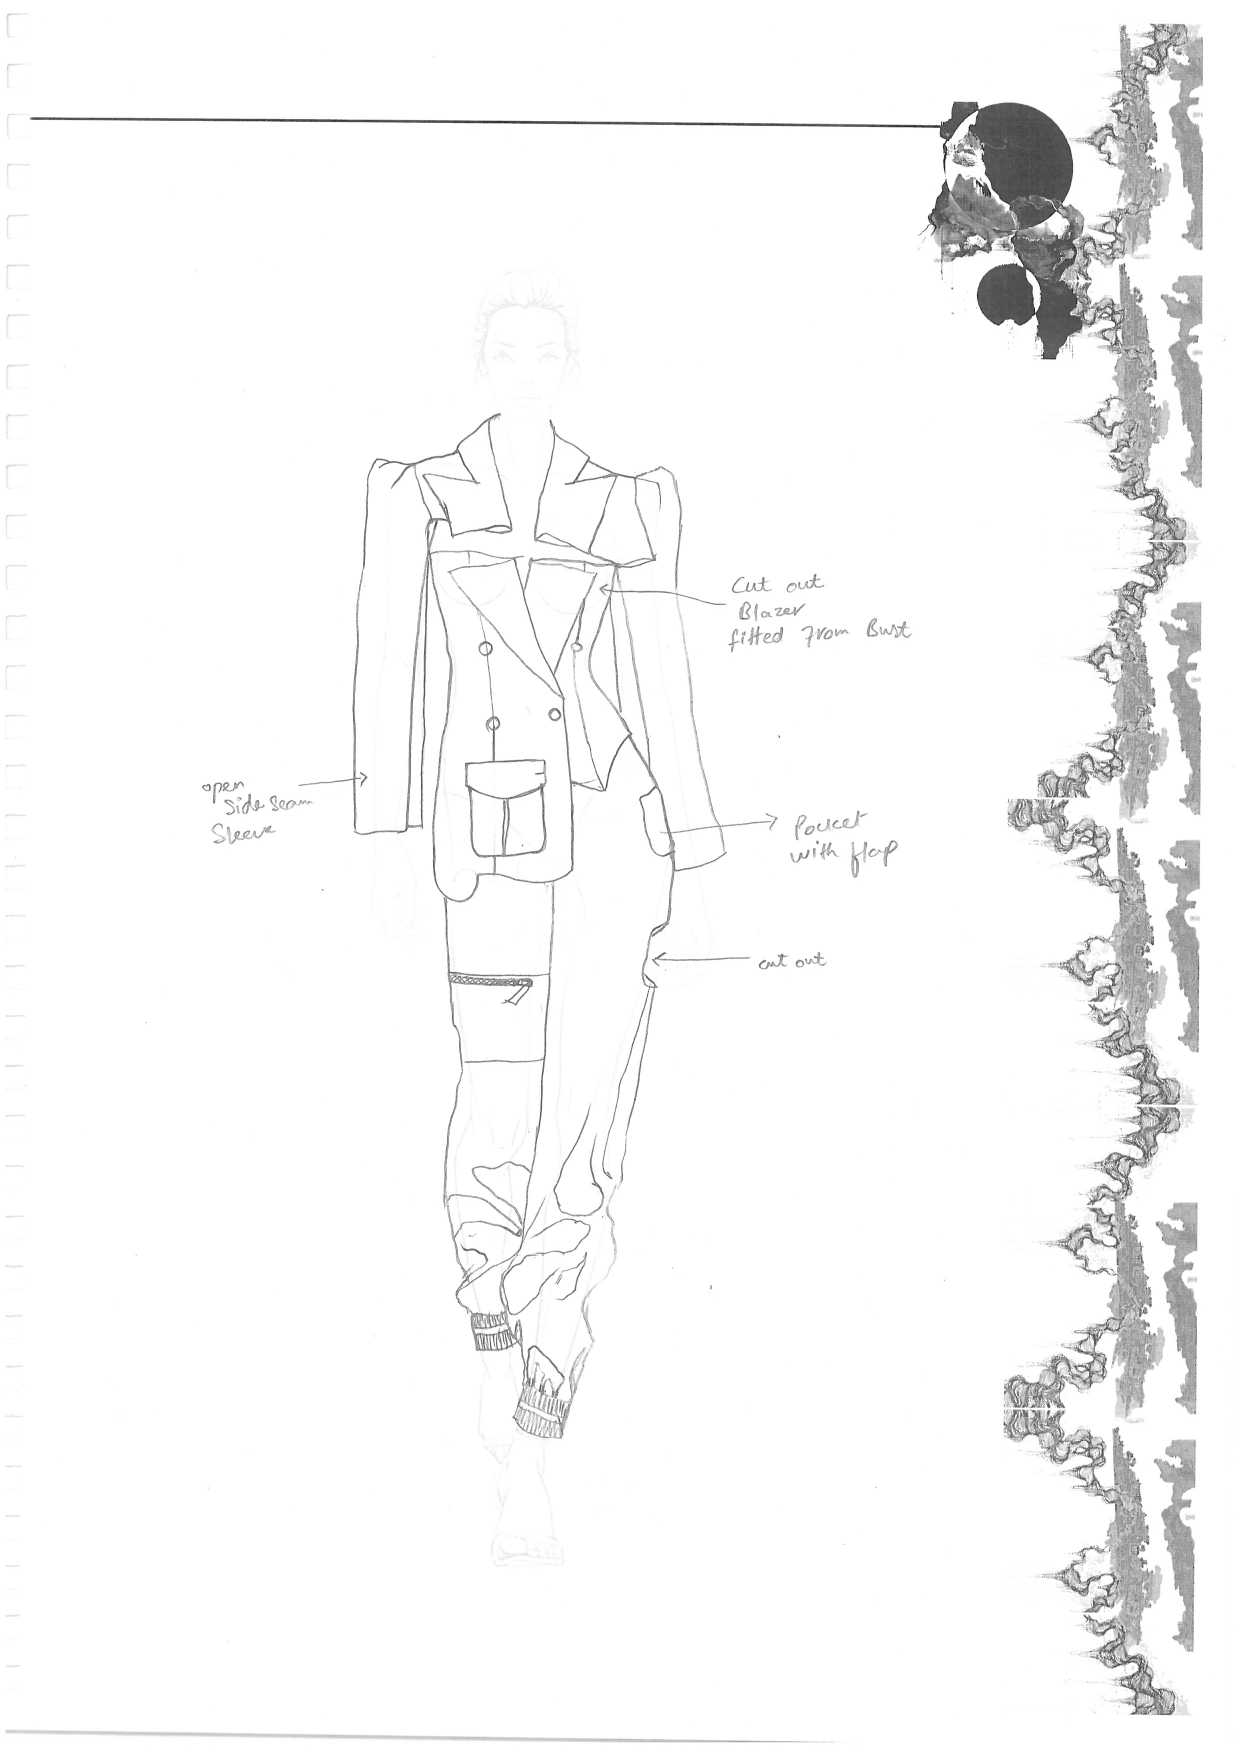 Cut out
Blazer
fitted from Bust
open
Side Seam
Sleeve
Pocket
with flap
cut out